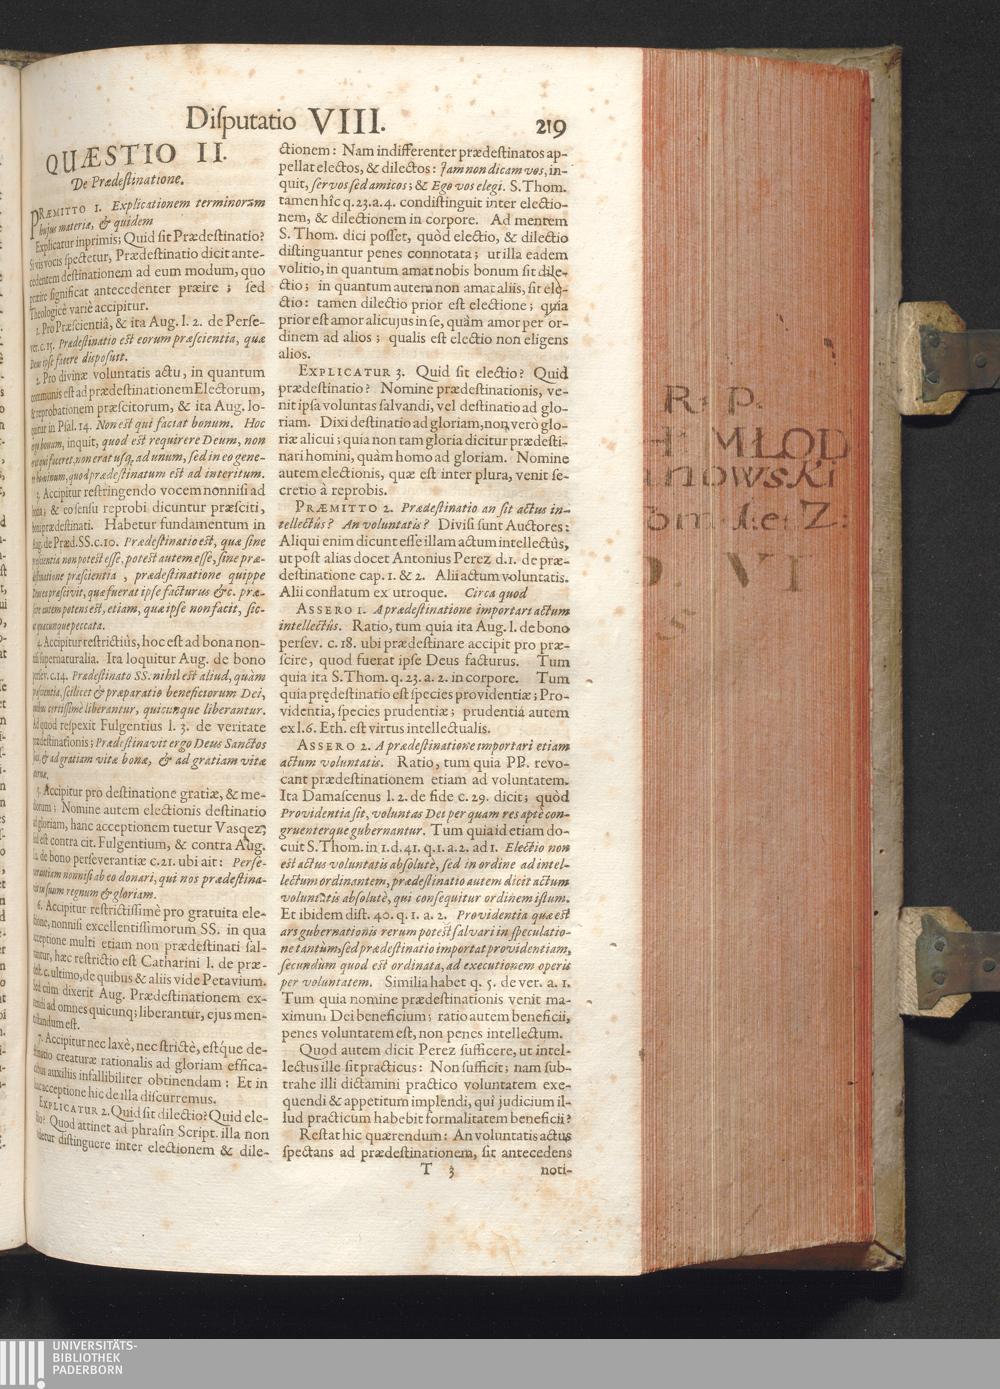 Disputatio VIII.
219
QUÆSTIO II.
De Prædestinatione.
PRÆMITTO 1. Explicationem terminorum
hujus materiæ, & quidem
Explicatur inprimis; Quid sit Prædestinatio?
Si vis vocis spectetur, Prædestinatio dicit ante-
cedentem destinationem ad eum modum, quo
præire significat antecedenter præire; sed
Theologicè variè accipitur.
1. Pro Præscientiâ, & ita Aug. l. 2. de Perse-
ver. c. 15. Prædestinatio est eorum præscientia, quæ
Deus ipse facere disposuit.
2. Pro divinæ voluntatis actu, in quantum
communis est ad prædestinationem Electorum,
& reprobationem præscitorum, & ita Aug. lo-
quitur in Psal. 14. Non est qui faciat bonum. Hoc
ergo bonum, inquit, quod est requirere Deum, non
erat qui faceret, non erat usq; ad unum, sed in eo gene-
re hominum, quod prædestinatum est ad interitum.
3. Accipitur restringendo vocem nonnisi ad
bona; & eo sensu reprobi dicuntur præsciti,
boni prædestinati. Habetur fundamentum in
Aug. de Præd. SS. c. 10. Prædestinatio est, quæ sine
præscientia non potest esse, potest autem esse, sine præ-
destinatione præscientia, prædestinatione quippe
Deus ea præscivit, quæ fuerat ipse facturus &c. præ-
scire autem potens est, etiam, quæ ipse non facit, sic-
ut quæcunque peccata.
4. Accipitur restrictiùs, hoc est ad bona non-
nisi supernaturalia. Ita loquitur Aug. de bono
persev. c. 14. Prædestinato SS. nihil est aliud, quàm
præscientia, scilicet & præparatio beneficiorum Dei,
quibus certissimè liberantur, quicunque liberantur.
Ad quod respexit Fulgentius l. 3. de veritate
prædestinationis; Prædestinavit ergo Deus Sanctos
suos, & ad gratiam vitæ bonæ, & ad gratiam vitæ
æternæ.
5. Accipitur pro destinatione gratiæ, & me-
diorum; Nomine autem electionis destinatio
ad gloriam, hanc acceptionem tuetur Vasqez;
sed est contra cit. Fulgentium, & contra Aug.
l. 2. de bono perseverantiæ c. 21. ubi ait: Perse-
verantiam nonnisi ab eo donari, qui nos prædestina-
vit in suum regnum & gloriam.
6. Accipitur restrictissimè pro gratuita ele-
ctione, nonnisi excellentissimorum SS. in qua
acceptione multi etiam non prædestinati sal-
vantur, hæc restrictio est Catharini l. de præ-
dest. c. ultimo, de quibus & aliis vide Petavium.
Sed cùm dixerit Aug. Prædestinationem ex-
tendi ad omnes quicunq; liberantur, ejus men-
ti standum est.
7. Accipitur nec laxè, nec strictè, estque de-
stinatio creaturæ rationalis ad gloriam effica-
cibus auxiliis infallibiliter obtinendam: Et in
hac acceptione hic de illa discurremus.
EXPLICATUR 2. Quid sit dilectio? Quid ele-
ctio? Quod attinet ad phrasin Script. illa non
videtur distinguere inter electionem & dile-
ctionem: Nam indifferenter prædestinatos ap-
pellat electos, & dilectos: Jam non dicam vos, in-
quit, servos sed amicos; & Ego vos elegi. S. Thom.
tamen hîc q. 23. a. 4. condistinguit inter electio-
nem, & dilectionem in corpore. Ad mentem
S. Thom. dici posset, quòd electio, & dilectio
distinguantur penes connotata; ut illa eadem
volitio, in quantum amat nobis bonum sit dile-
ctio; in quantum autem non amat aliis, sit ele-
ctio: tamen dilectio prior est electione; quia
prior est amor alicujus in se, quàm amor per or-
dinem ad alios; qualis est electio non eligens
alios.
EXPLICATUR 3. Quid sit electio? Quid
prædestinatio? Nomine prædestinationis, ve-
nit ipsa voluntas salvandi, vel destinatio ad glo-
riam. Dixi destinatio ad gloriam, non vero glo-
riæ alicui; quia non tam gloria dicitur prædesti-
nari homini, quàm homo ad gloriam. Nomine
autem electionis, quæ est inter plura, venit se-
cretio à reprobis.
PRÆMITTO 2. Prædestinatio an sit actus in-
tellectûs? An voluntatis? Divisi sunt Auctores:
Aliqui enim dicunt esse illam actum intellectûs,
ut post alias docet Antonius Perez d. 1. de præ-
destinatione cap. 1. & 2. Alii actum voluntatis.
Alii conflatum ex utroque. Circa quod
ASSERO 1. A prædestinatione importari actum
intellectûs. Ratio, tum quia ita Aug. l. de bono
persev. c. 18. ubi prædestinare accipit pro præ-
scire, quod fuerat ipse Deus facturus. Tum
quia ita S. Thom. q. 23. a. 2. in corpore. Tum
quia prędestinatio est species providentiæ; Pro-
videntia, species prudentiæ; prudentia autem
ex l. 6. Eth. est virtus intellectualis.
ASSERO 2. A prædestinatione importari etiam
actum voluntatis. Ratio, tum quia PP. revo-
cant prædestinationem etiam ad voluntatem.
Ita Damascenus l. 2. de fide c. 29. dicit; quòd
Providentia sit, voluntas Dei per quam res aptè con-
gruenterque gubernantur. Tum quia id etiam do-
cuit S. Thom. in 1. d. 41. q. 1. a. 2. ad 1. Electio non
est actus voluntatis absolutè, sed in ordine ad intel-
lectum ordinantem, prædestinatio autem dicit actum
voluntatis absolutè, qui consequitur ordinem istum.
Et ibidem dist. 40. q. 1. a. 2. Providentia quæ est
ars gubernationis rerum potest salvari in speculatio-
ne tantùm, sed prædestinatio importat providentiam,
secundùm quod est ordinata, ad executionem operis
per voluntatem. Similia habet q. 5. de ver. a. 1.
Tum quia nomine prædestinationis venit ma-
ximum Dei beneficium; ratio autem beneficii,
penes voluntatem est, non penes intellectum.
Quod autem dicit Perez sufficere, ut intel-
lectus ille sit practicus: Non sufficit; nam sub-
trahe illi dictamini practico voluntatem exe-
quendi & appetitum implendi, quî judicium il-
lud practicum habebit formalitatem beneficii?
Restat hic quærendum: An voluntatis actus
spectans ad prædestinationem, sit antecedens
T 3
noti-
R: P.
MŁOD
anowski
Z:
VI
UNIVERSITÄTS-
BIBLIOTHEK
PADERBORN